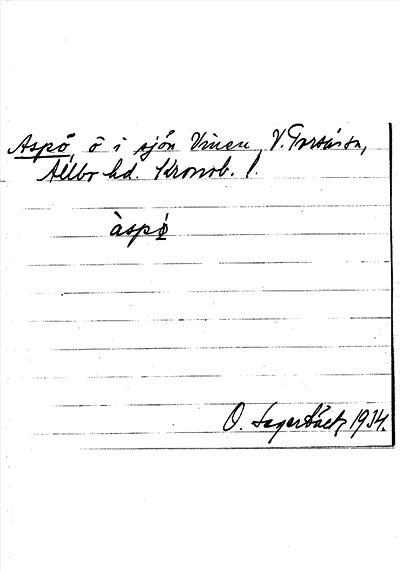 Aspö, ö i sjön Vinen, V. Torsåsen,
Allbo hd. Kronob. l.
àspǫ́
O. Lagerbäck 1934.